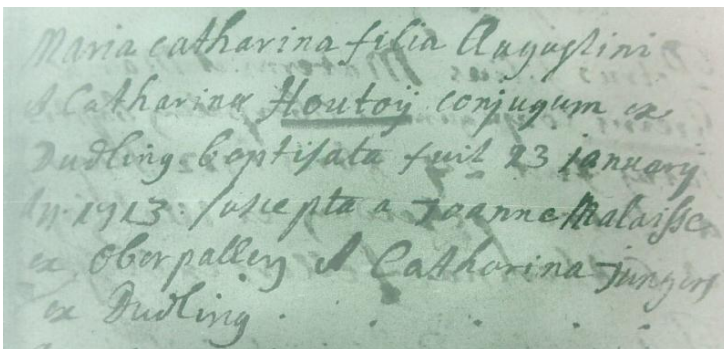 Maria catharina filia Augustini
et Catharinæ Houtoij conjugum ex
Dudling baptisata fuit 23 january
1713 suscepta a Joanne Malaisse
ex Oberpallen et Catharina Jungers
ex Dudling